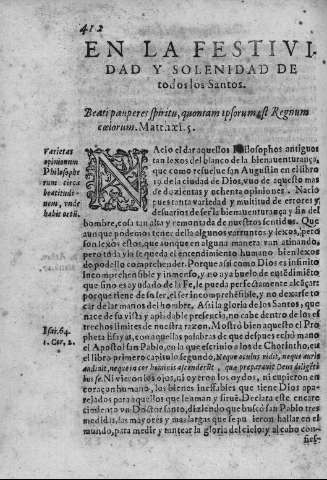 412
EN LA FESTIVI-
DAD Y SOLENIDAD DE
todos los Santos.
Beati pauperes spiritu, quoniam ipsorum est Regnum
cælorum. Matthæi. 5.
Varietas
opinionum
Philosopho
rum circa
beatitudi-
nem, unde
habit ortū.
NAcio el dar aquellos Philosophos antiguos
tan lexos del blanco de la bienauenturança,
que como resuelue san Augustin en el libro
19. de la ciudad de Dios, vuo de aquesto mas
de dozientas y ochenta opiniones. Nacio
pues tanta variedad y multitud de errores y
desuarios de ser la bienauenturança y fin del
hombre, cosa tan alta y remontada de nuestros sentidos. Que
aunque podemos tener della algunos varruntos y lexos, pero
son lexos estos, que aunque en alguna manera van atinando,
pero toda via se queda el entendimiento humano bien lexos
de podello comprehender. Porque assi como Dios es infinito
incomprehensible y inmenso, y no ay buelo de entēdimiēto
que sino es ayudado de la Fe, le pueda perfectamente alcāçar:
porque tiene de su ser, el ser incomprehensible, y no dexarse to
car de las manos del hombre. Assi la gloria de los Santos, que
nace de su vista y apazible presencia, no cabe dentro de los es
trechos limites de nuestra razon. Mostrò bien aquesto el Pro
Isai. 64.
pheta Isayas, con aquellas palabras de que despues echò mano
1. Cor. 2.
el Apostol san Pablo, en la que escriuio a los de Chorintho, en
el libro primero capitulo segundo, Neque oculus vidit, neque auris
audiuit, neque in cor hominis ascenderūt, quæ præparauit Deus diligētibus
se. Ni vieron los ojos, ni oyeron los oydos, ni cupieron en
coraçon humano, los bienes inefables que tiene Dios apa-
rejados para aquellos que le aman y siruē. Declara este encare
cimiento vn Doctor santo, diziendo que buscò san Pablo tres
medidas, las mayores y mas largas que se pudieron hallar en el
mundo, para medir y tantear la gloria del cielo: y al cabo con-
fies-